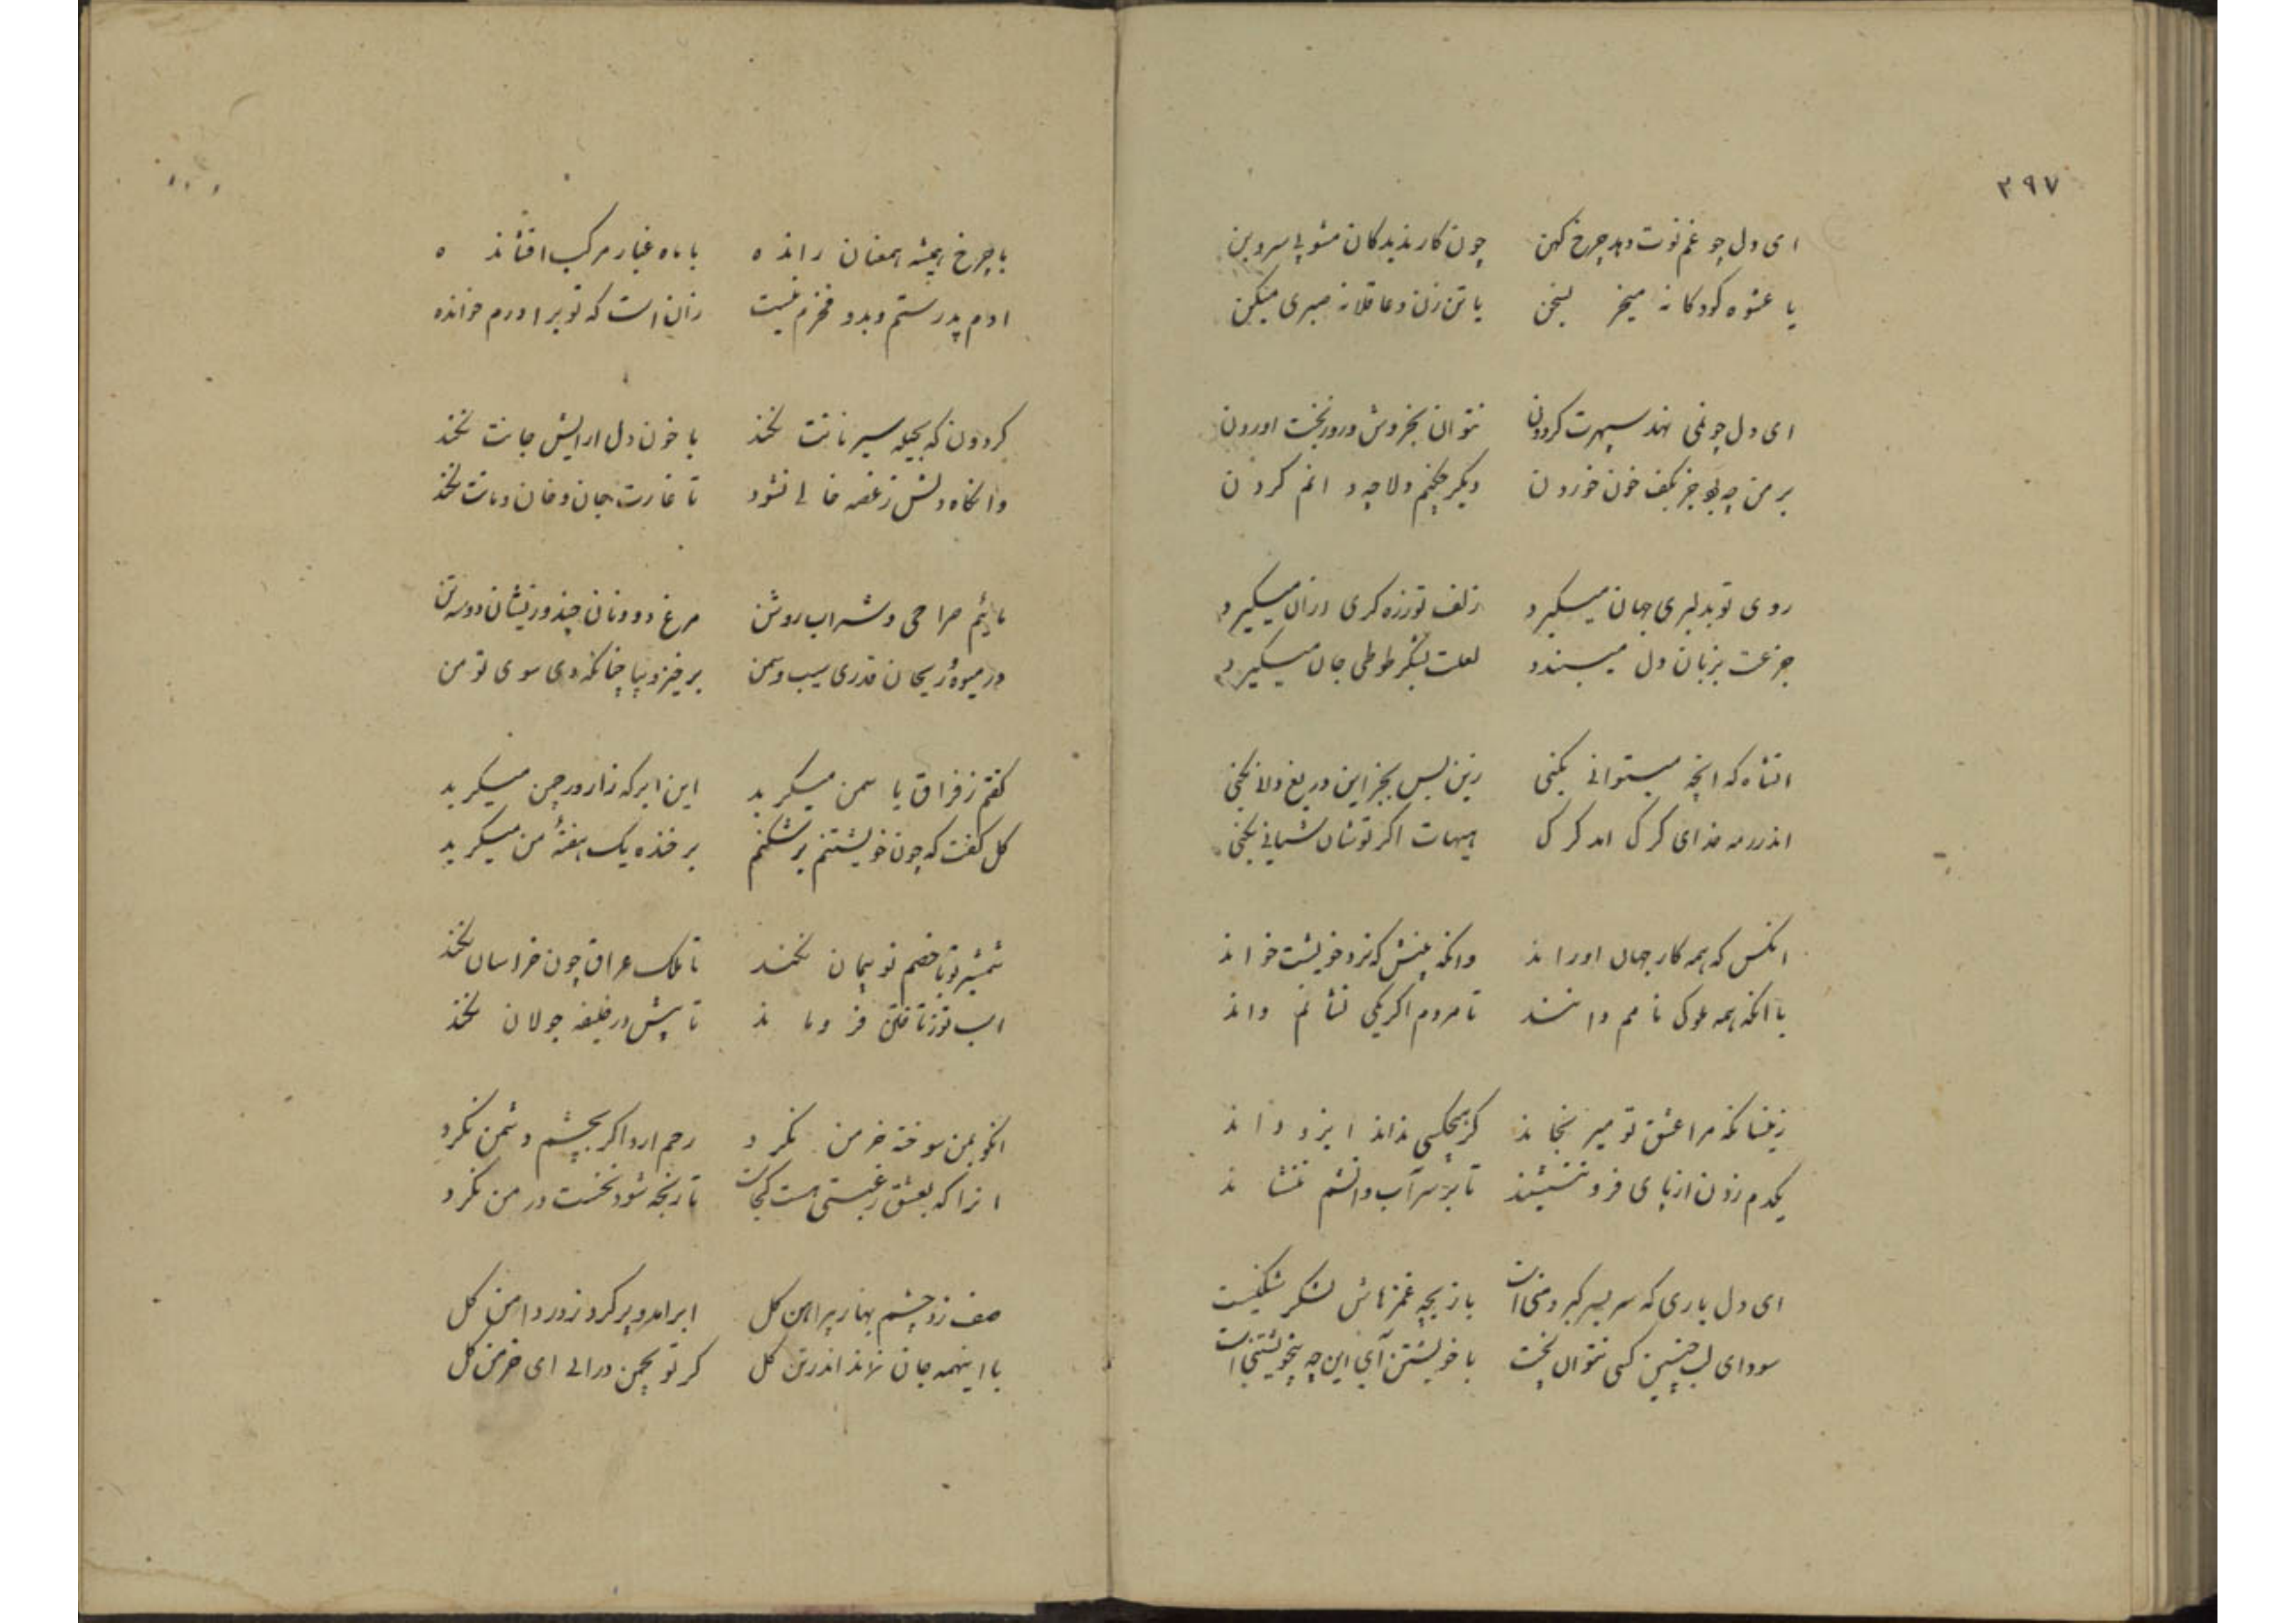 ۳۹۷
ای دل چو غم نوت دهد چرخ کهن چون کار ندیدگان مشو بی سر و بن
یا عشوه کودکانه میخر بسخن یا تن زن و عاقلانه صبری میکن
ای دل چو نمی نهد سپهرت گردن نتوان بخروش و زور بخت اوردن
بر من چه بود جز بکف خون خوردن دیگر چکنم ولا چه دانم کردن
روی تو بدلبری جهان میگیرد زلف تو زره گری دران میگیرد
جزعت بزبان دل میبندد لعلت بشکر طوطی جان میگیرد
انشاه که انچه میتوانی بکنی زین بس بجز این دریغ ولا نکنی
اندر رمه خدای گرگ امد گرگ هیهات اگر تو شان شبانی نکنی
انکس که همه کار جهان او راند وانکه بمنش که نزد خویشت خواند
با انکه همه ملوک نامم دانند تا مردم اگر یکی نشانم داند
زینسانکه مرا عشق تو میرنجاند گر هیچکسی نداند ایزد داند
یکدم زدن از پای فرو ننشیند تا بر سر آب و اتشم ننشاند
ای دل یاری که سر بسر کبر و منی است بازیچه غمزهاش لشکر شکنیست
سودای لب چنین کسی نتوان پخت با خویشتن آی این چه بیخویشتنی است
با چرخ همیشه همعنان رانده با ماه غبار مرکب افشانده
ادم پدرستم و بدو فخرم نیست زان است که تو برادرم خوانده
گردون که بحیله سیر نانت نکند با خون دل ارایش جانت نکند
وانگاه دلش ز غصه خالی نشود تا غارت جان و خان و مانت نکند
مائیم صراحی و شراب روشن مرغ دو و نان چند و زیشان دو سه تن
وز میوه و ریحان قدری سیب و سمن برخیز و بیا چنانکه دی سوی تو من
گفتم ز فراق یاسمن میگرید این ابر که زار در چمن میگرید
گل گفت که چون خویشتنم برشکنم بر خنده یک هفتهٔ من میگرید
شمشیر تو تا خصم تو بیجان نکند تا ملک عراق چون خراسان نکند
اسب تو ز تاختن فرو ماند تا پیش در خلیفه جولان نکند
انکو بمن سوخته خرمن نگرد رحم ارد اگر بچشم دشمن نگرد
انرا که بعشق رغبتی هست کجاست تا رنجه شود نخست در من نگرد
صف زد چشم بهار پیراهن گل ابر امد و پر کرد ز در دامن گل
با اینهمه جان نماند اندر تن گل گر تو بچمن درائی ای خرمن گل